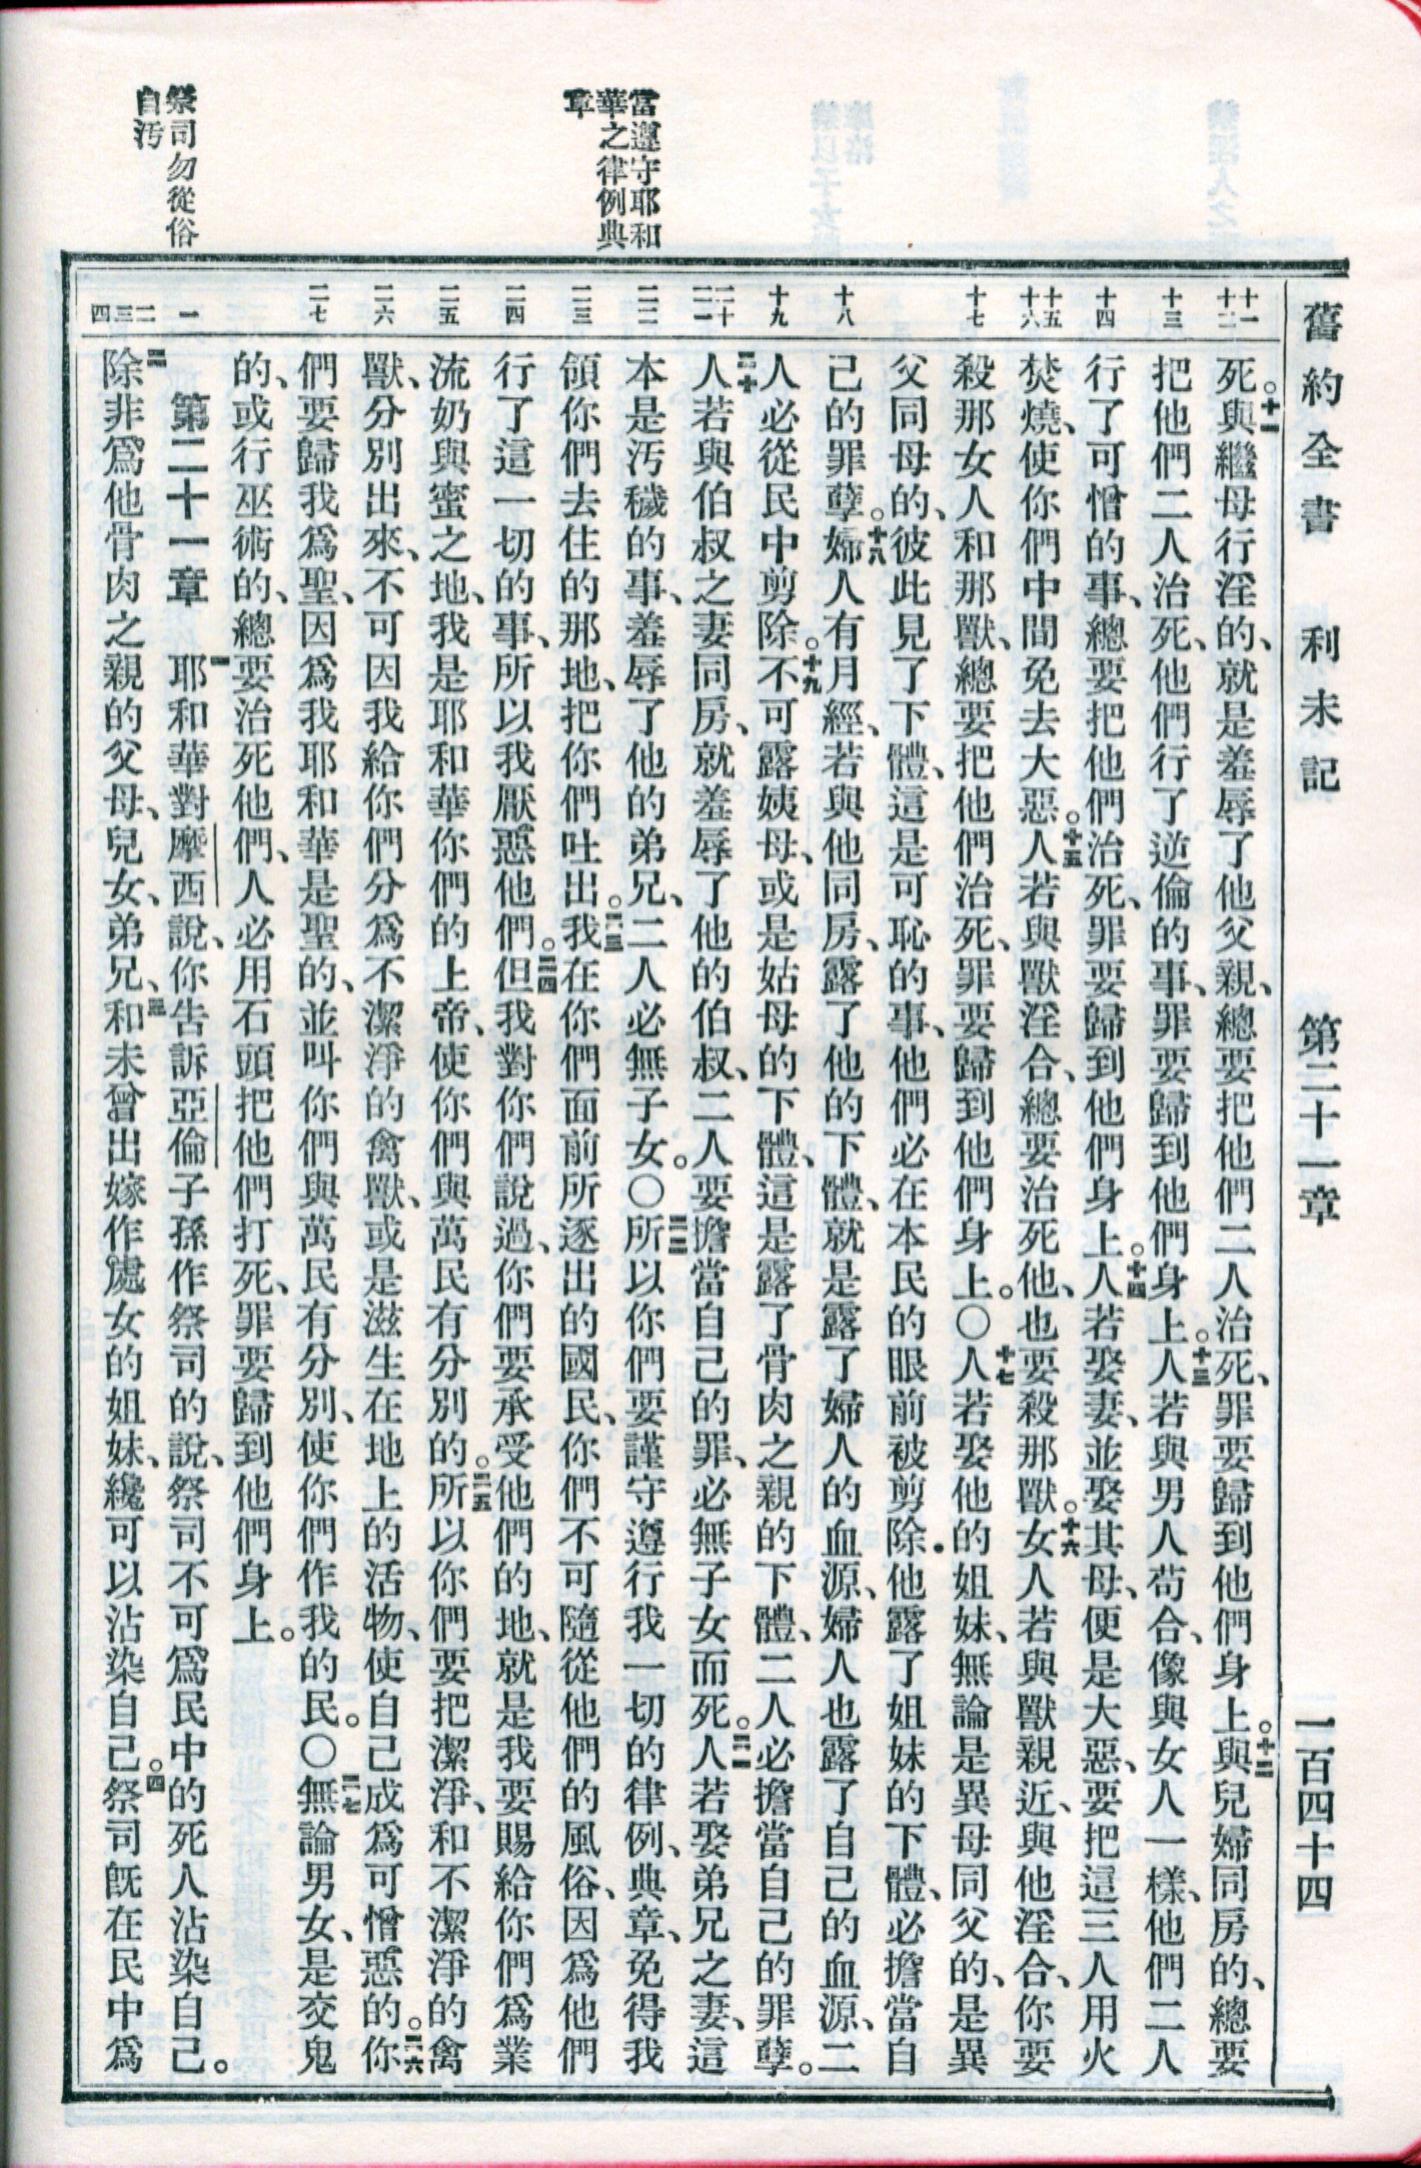 舊約全書　利未記　第二十一章　一百四十四
當遵守耶和
華之律例典
章
祭司勿從俗
自污
十一
十二
十三
十四
十五
十六
十七
十八
十九
二十
二一
二二
二三
二四
二五
二六
二七
一
二
三
四
死。十一與繼母行淫的、就是羞辱了他父親、總要把他們二人治死、罪要歸到他們身上。十二與兒婦同房的、總要
把他們二人治死、他們行了逆倫的事、罪要歸到他們身上。十三人若與男人苟合、像與女人一樣、他們二人
行了可憎的事、總要把他們治死、罪要歸到他們身上。十四人若娶妻、並娶其母、便是大惡、要把這三人用火
焚燒、使你們中間免去大惡。十五人若與獸淫合、總要治死他、也要殺那獸。十六女人若與獸親近、與他淫合、你要
殺那女人和那獸、總要把他們治死、罪要歸到他們身上。〇十七人若娶他的姐妹、無論是異母同父的、是異
父同母的、彼此見了下體、這是可恥的事、他們必在本民的眼前被剪除．他露了姐妹的下體、必擔當自
己的罪孽。十八婦人有月經、若與他同房、露了他的下體、就是露了婦人的血源、婦人也露了自己的血源、二
人必從民中剪除。十九不可露姨母、或是姑母的下體、這是露了骨肉之親的下體、二人必擔當自己的罪孽。
二十人若與伯叔之妻同房、就羞辱了他的伯叔、二人要擔當自己的罪、必無子女而死。二一人若娶弟兄之妻、這
本是污穢的事、羞辱了他的弟兄、二人必無子女。〇二二所以你們要謹守遵行我一切的律例、典章、免得我
領你們去住的那地、把你們吐出。二三我在你們面前所逐出的國民、你們不可隨從他們的風俗、因爲他們
行了這一切的事、所以我厭惡他們。二四但我對你們說過、你們要承受他們的地、就是我要賜給你們爲業
流奶與蜜之地、我是耶和華你們的上帝、使你們與萬民有分別的。二五所以你們要把潔淨、和不潔淨的禽
獸、分別出來、不可因我給你們分爲不潔淨的禽獸、或是滋生在地上的活物、使自己成爲可憎惡的。二六你
們要歸我爲聖、因爲我耶和華是聖的、並叫你們與萬民有分別、使你們作我的民。〇二七無論男女、是交鬼
的、或行巫術的、總要治死他們、人必用石頭把他們打死、罪要歸到他們身上。
第二十一章　一耶和華對摩西說、你告訴亞倫子孫作祭司的說、祭司不可爲民中的死人沾染自己。
二除非爲他骨肉之親的父母、兒女、弟兄、三和未曾出嫁作處女的姐妹、纔可以沾染自己。四祭司旣在民中爲